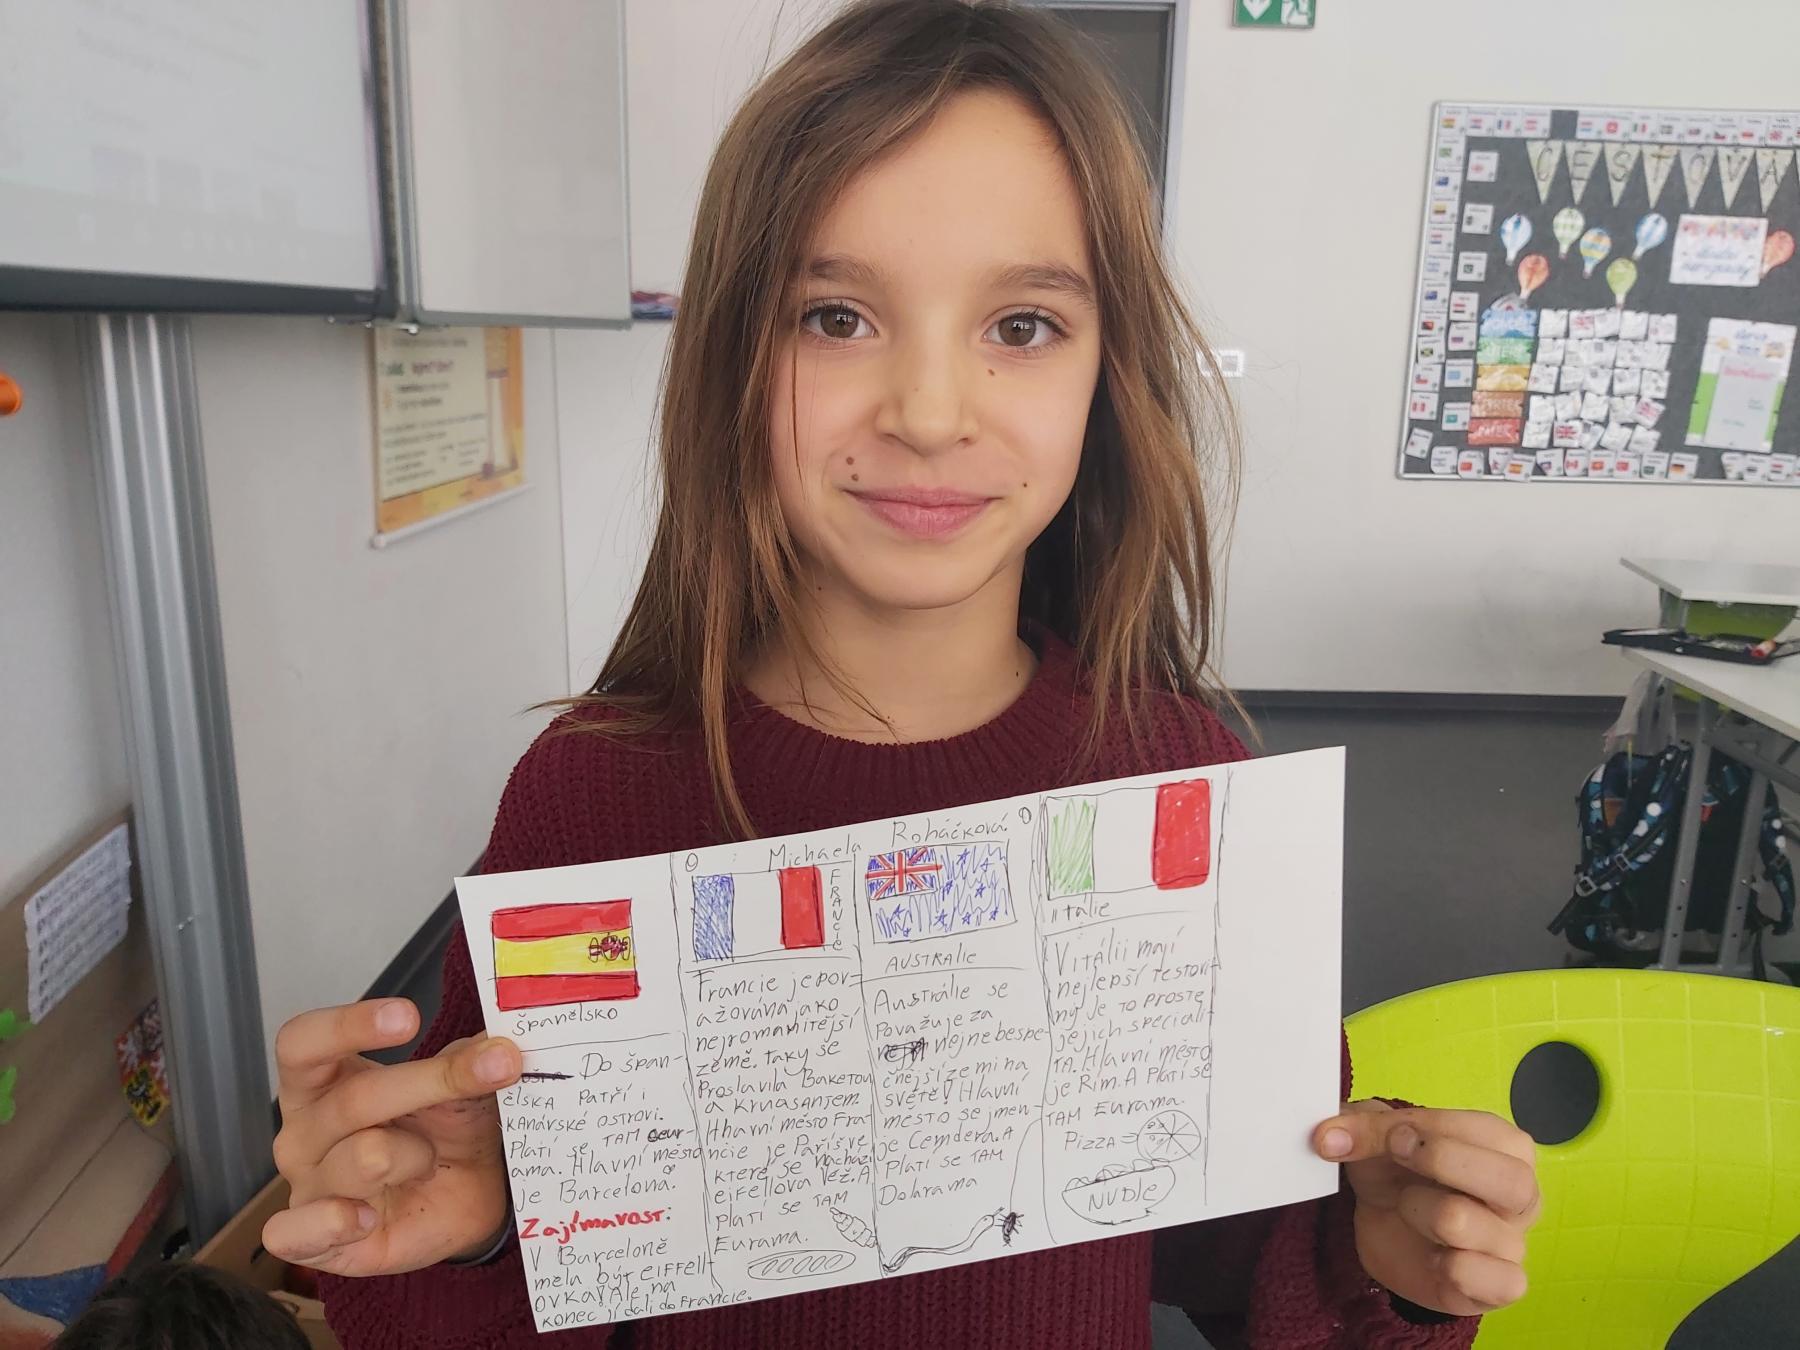 Michaela Roháčková
Španělsko
Do Špan-
ělska patří i
kanárské ostrovi.
Platí se tam eur-
ama. Hlavní město
je Barcelona.
Zajímavost:
V Barceloně
mela být eiffell-
ovka! Ale na
konec jí dali do Francie.
FRANCIE
Francie je pov-
ažována jako
nejromantitější
země. taky se
Proslavila Baketou
a krusantem.
Hlavní město Fra-
ncie je Paříš ve
které se nachází
eifellova věž. A
platí se tam
Eurama.
AUSTRALIE
Australie se
považuje za
nejnebespe-
čnější zemi na
světě! Hlavní
město se jmen-
je Cemdera. A
platí se tam
Dolarama
itálie
V itálii mají
nejlepší testovi-
ny je to prostě
jejich speciali-
ta. Hlavní město
je Řím. A platí se
tam Eurama.
PIZZA =
NUDLE
CESTOVÁ